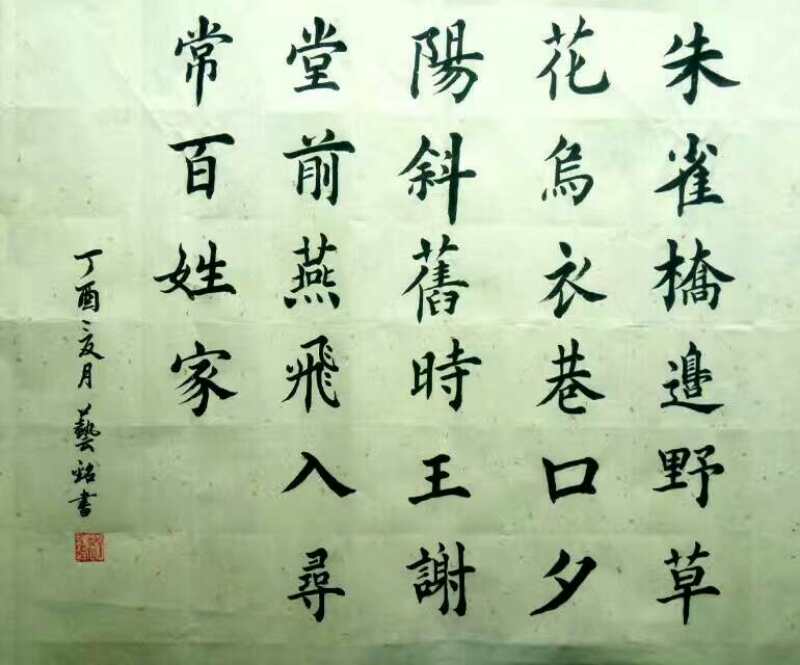 朱雀橋邉野草
花烏衣巷口夕
陽斜舊時王謝
堂前燕飛入尋
常百姓家
丁酉亥月藝銘書